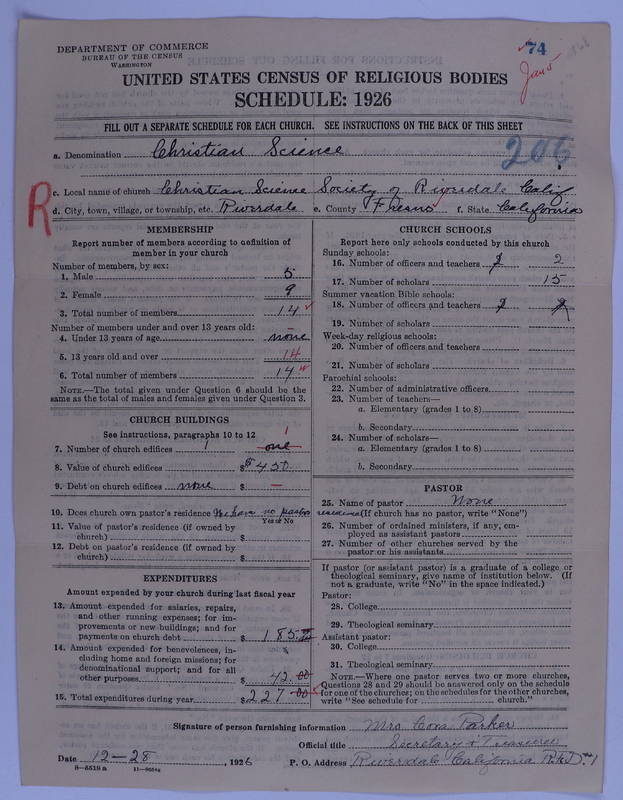 DEPARTMENT OF COMMERCE
BUREAU OF THE CENSUS
WASHINGTON
74
Jan 5
UNITED STATES CENSUS OF RELIGIOUS BODIES
SCHEDULE: 1926
FILL OUT A SEPARATE SCHEDULE FOR EACH CHURCH. SEE INSTRUCTIONS ON THE BACK OF THIS SHEET
a. Denomination Christian Science
206
R
c. Local name of church Christian Science Society of Riverdale Calif
d. City, town, village, or township, etc. Riverdale e. County Fresno f. State California
MEMBERSHIP
Report number of members according to definition of
member in your church
Number of members, by sex:
1. Male 5
2. Female 9
3. Total number of members 14
Number of members under and over 13 years old:
4. Under 13 years of age none
5. 13 years old and over 14
6. Total number of members 14
NOTE.—The total given under Question 6 should be the
same as the total of males and females given under Question 3.
CHURCH BUILDINGS
See instructions, paragraphs 10 to 12
7. Number of church edifices 1 one
8. Value of church edifices $ 450
9. Debt on church edifices none $ —
10. Does church own pastor's residence We have no pastor residence
Yes or No
11. Value of pastor's residence (if owned by
church) $
12. Debt on pastor's residence (if owned by
church) $
EXPENDITURES
Amount expended by your church during last fiscal year
13. Amount expended for salaries, repairs,
and other running expenses; for im-
provements or new buildings; and for
payments on church debt $ 185.
14. Amount expended for benevolences, in-
cluding home and foreign missions; for
denominational support; and for all
other purposes $ 42.00
15. Total expenditures during year $ 227 00
CHURCH SCHOOLS
Report here only schools conducted by this church
Sunday schools:
16. Number of officers and teachers 2
17. Number of scholars 15
Summer vacation Bible schools:
18. Number of officers and teachers
19. Number of scholars
Week-day religious schools:
20. Number of officers and teachers
21. Number of scholars
Parochial schools:
22. Number of administrative officers
23. Number of teachers—
a. Elementary (grades 1 to 8)
b. Secondary
24. Number of scholars—
a. Elementary (grades 1 to 8)
b. Secondary
PASTOR
25. Name of pastor None
(If church has no pastor, write "None")
26. Number of ordained ministers, if any, em-
ployed as assistant pastors
27. Number of other churches served by the
pastor or his assistants
If pastor (or assistant pastor) is a graduate of a college or
theological seminary, give name of institution below. (If
not a graduate, write "No" in the space indicated.)
Pastor:
28. College
29. Theological seminary
Assistant pastor:
30. College
31. Theological seminary
NOTE.—Where one pastor serves two or more churches,
Questions 28 and 29 should be answered only on the schedule
for one of the churches; on the schedules for the other churches,
write "See schedule for church."
Signature of person furnishing information Mrs Cora Parker
Official title Secretary & Treasurer
Date 12—28, 1926 P. O. Address Riverdale California R.F.D. #1
8—5518 a 11—9054a